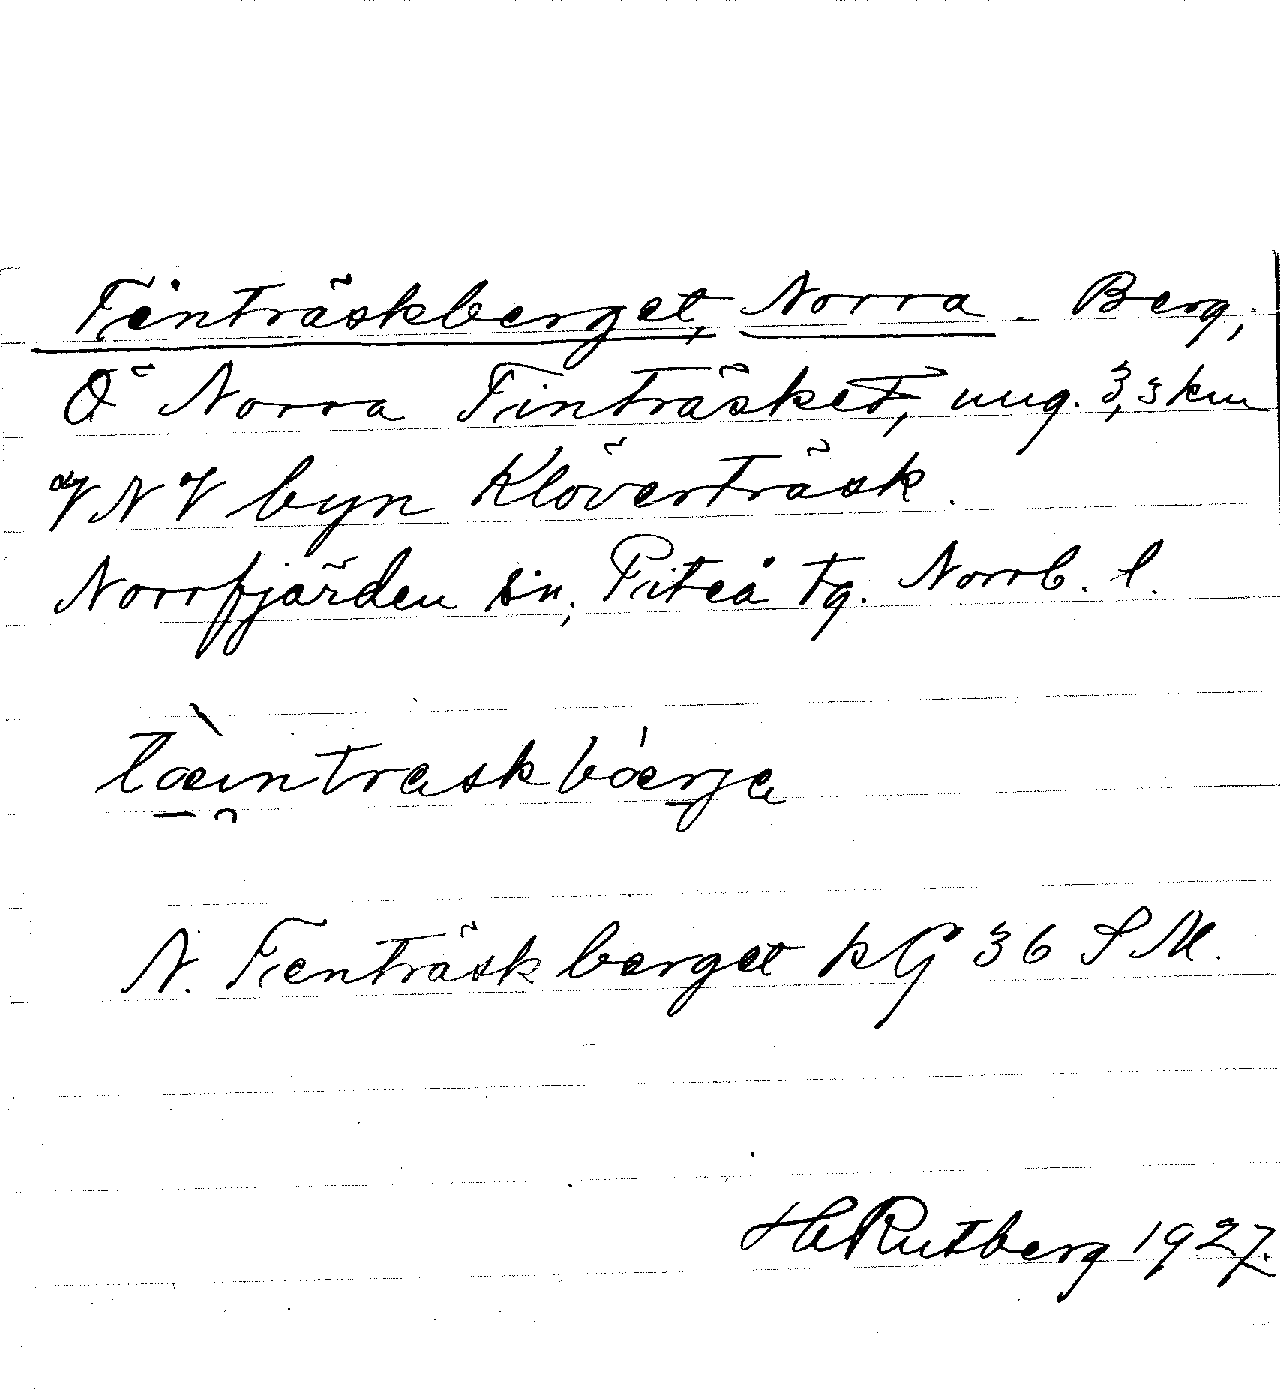 Finträskberget, Norra - Berg,
Ö Norra Finträsket, ung. 3,3 km
VNV byn Klöverträsk.
Norrfjärden sn, Piteå tg. Norrb. l.
N. Finträskberget kG 36 SM.
H Rutberg 1927.